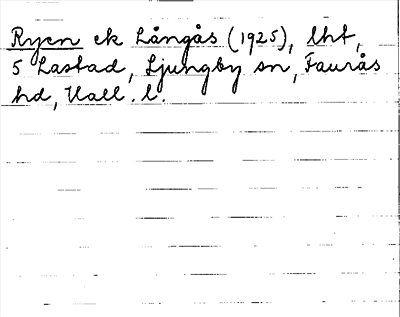 Ryen ek Långås (1925), lht,
5 Lastad, Ljungby sn, Faurås
hd, Hall. l.